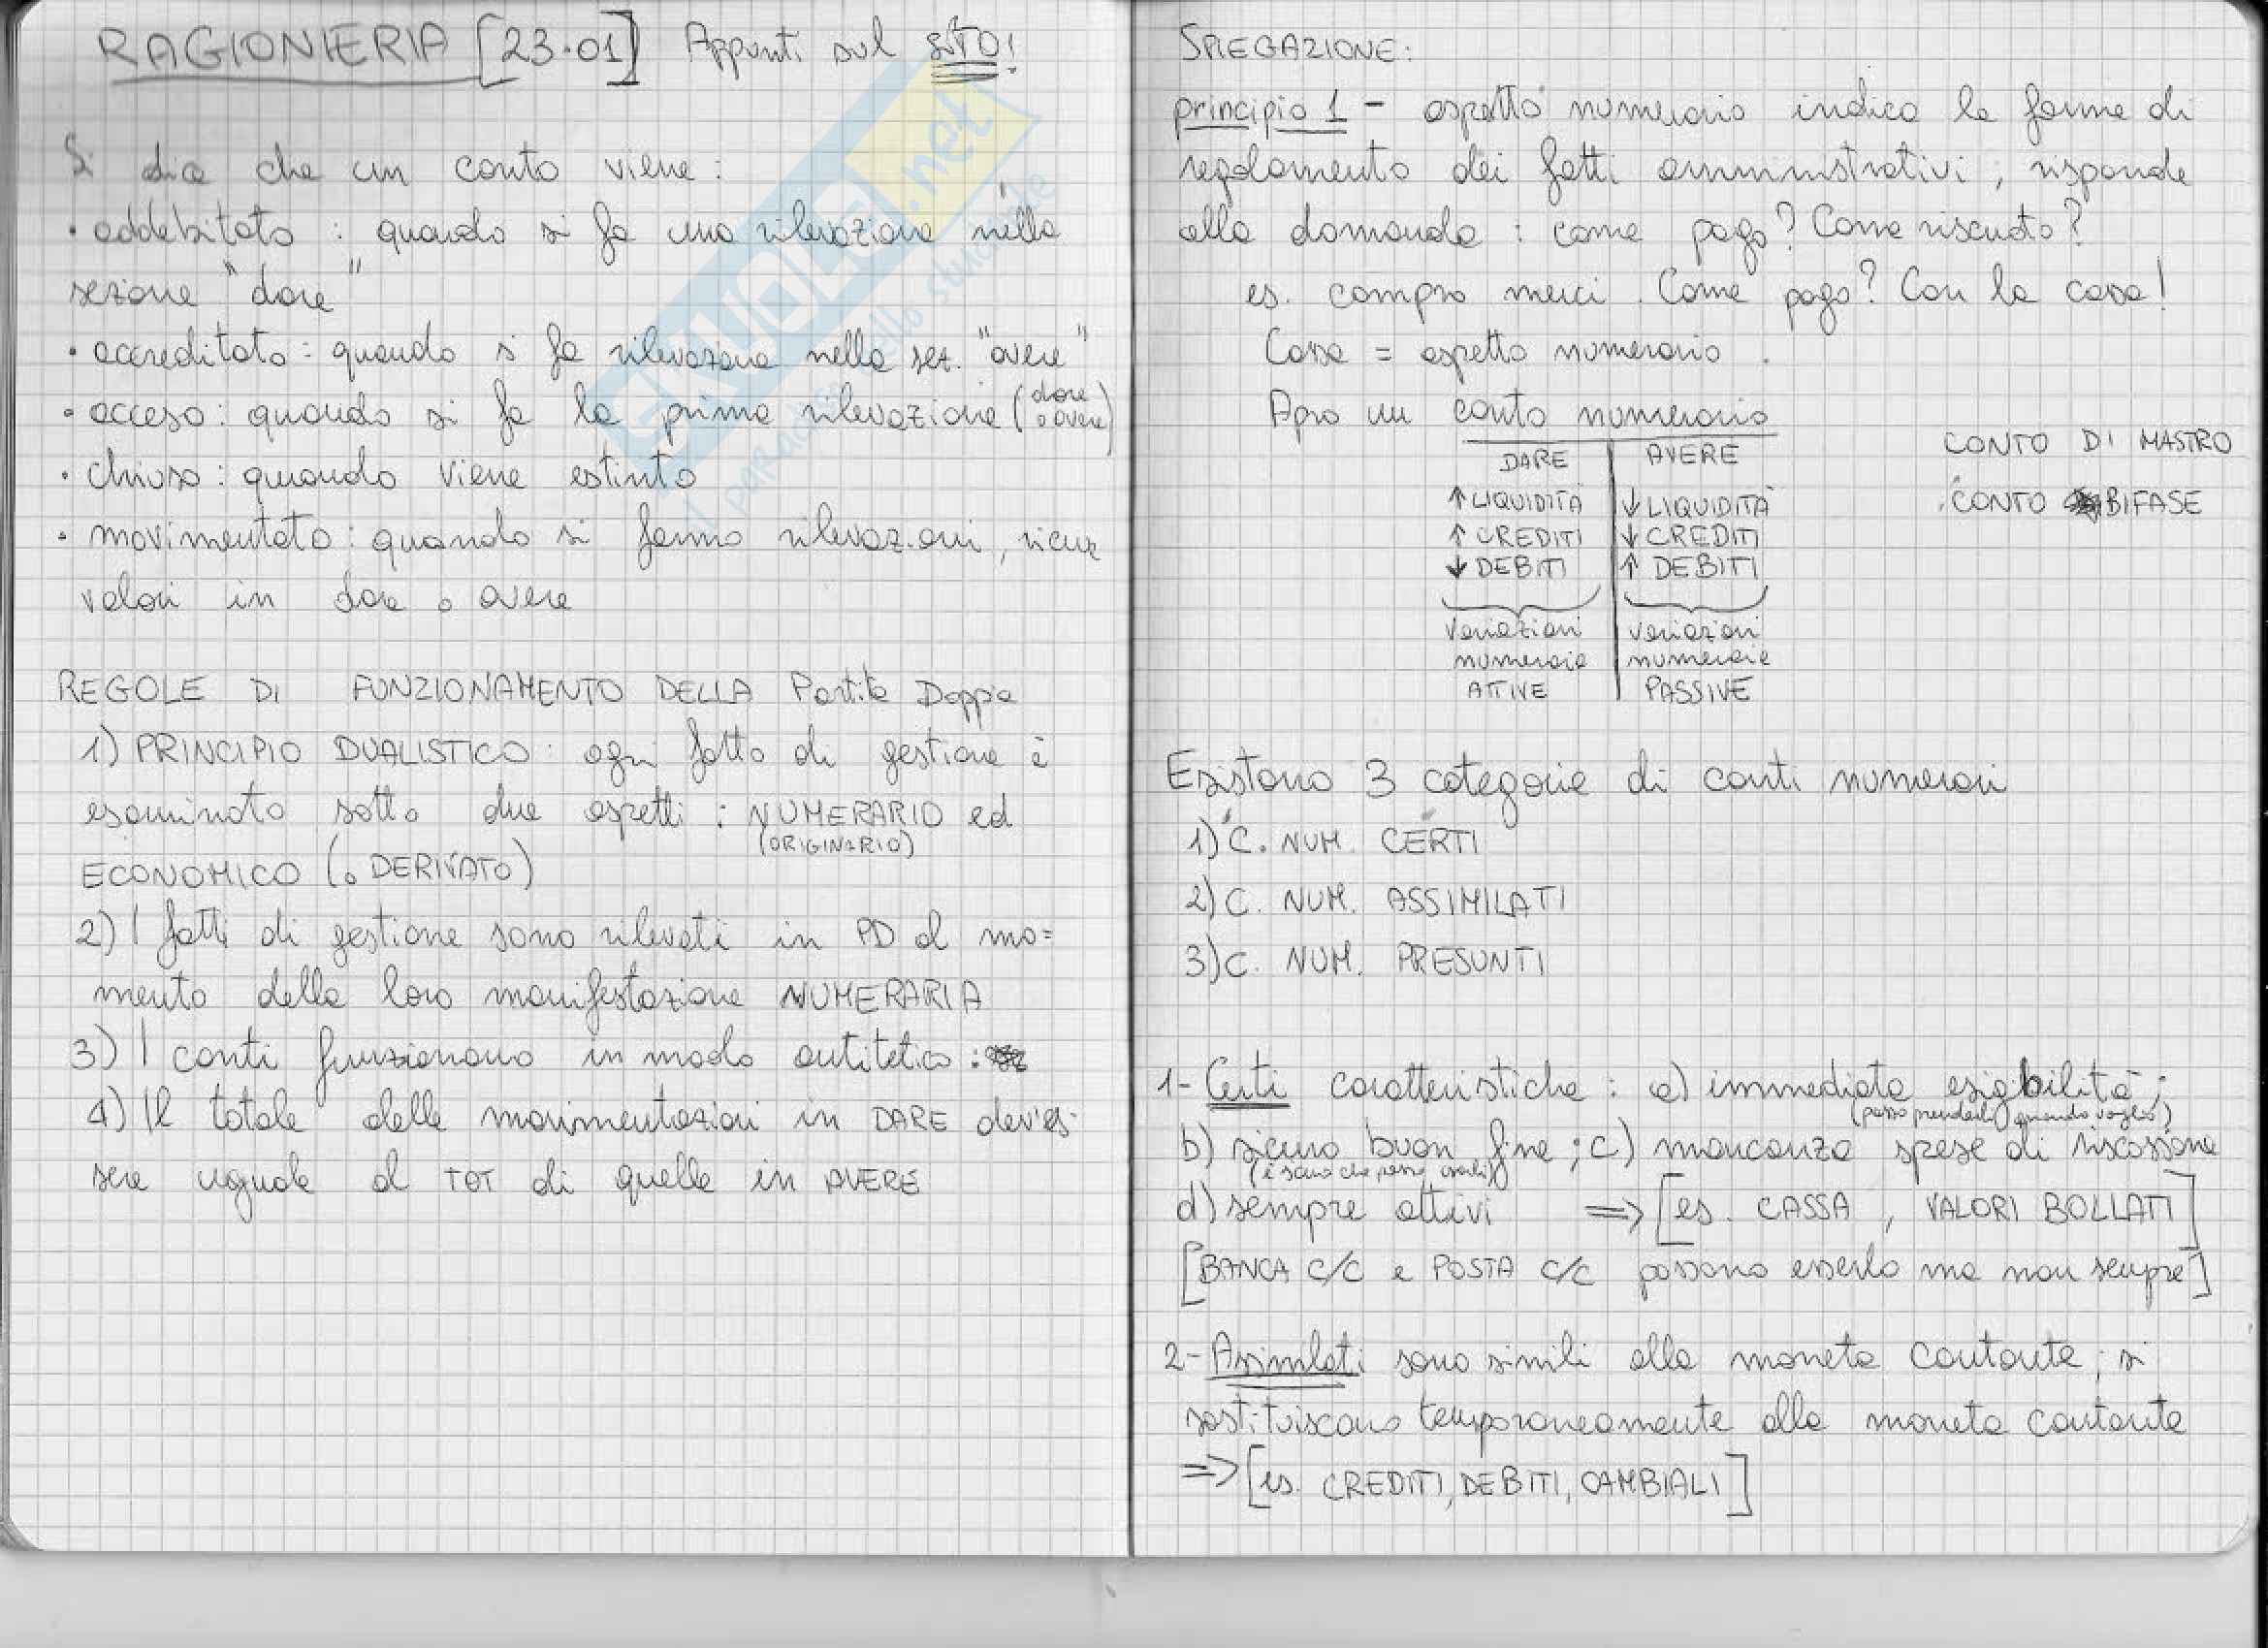 RAGIONIERIA [23.01] Appunti sul SITO!
Si dice che un conto viene:
• addebitato: quando si fa una rilevazione nella
sezione "dare"
• accreditato: quando si fa rilevazione nella sez. "avere"
• acceso: quando si fa la prima rilevazione (dare o avere)
• chiuso: quando viene estinto
• movimentato: quando si fanno rilevazioni, riceve
valori in dare o avere
REGOLE DI FUNZIONAMENTO DELLA Partita Doppia
1) PRINCIPIO DUALISTICO: ogni fatto di gestione è
esaminato sotto due aspetti: NUMERARIO ed
(ORIGINARIO)
ECONOMICO (o DERIVATO)
2) I fatti di gestione sono rilevati in PD al mo=
mento della loro manifestazione NUMERARIA
3) I conti funzionano in modo antitetico:
4) Il totale delle movimentazioni in DARE dev'es-
sere uguale al TOT di quelle in AVERE
SPIEGAZIONE:
principio 1 - aspetto numerario indica le forme di
regolamento dei fatti amministrativi, risponde
alla domanda: come pago? Come riscuoto?
es. compro merci. Come pago? Con la cassa!
Cassa = aspetto numerario.
Apro un conto numerario
DARE | AVERE
↑ LIQUIDITÀ | ↓ LIQUIDITÀ
↑ CREDITI | ↓ CREDITI
↓ DEBITI | ↑ DEBITI
variazioni | variazioni
numerarie | numerarie
ATTIVE | PASSIVE
CONTO DI MASTRO
CONTO BIFASE
Esistono 3 categorie di conti numerari
1) C. NUM. CERTI
2) C. NUM. ASSIMILATI
3) C. NUM. PRESUNTI
1- Certi caratteristiche: a) immediata esigibilità;
(posso prenderli quando voglio)
b) sicuro buon fine; c) mancanza spese di riscossione
(è sicuro che posso usarli)
d) sempre attivi => [es. CASSA, VALORI BOLLATI]
[BANCA c/c e POSTA c/c possono esserlo ma non sempre]
2- Assimilati sono simili alla moneta contante; si
sostituiscono temporaneamente alla moneta contante
=> [es. CREDITI, DEBITI, CAMBIALI]
SKUOLA.net
il paradiso dello studente